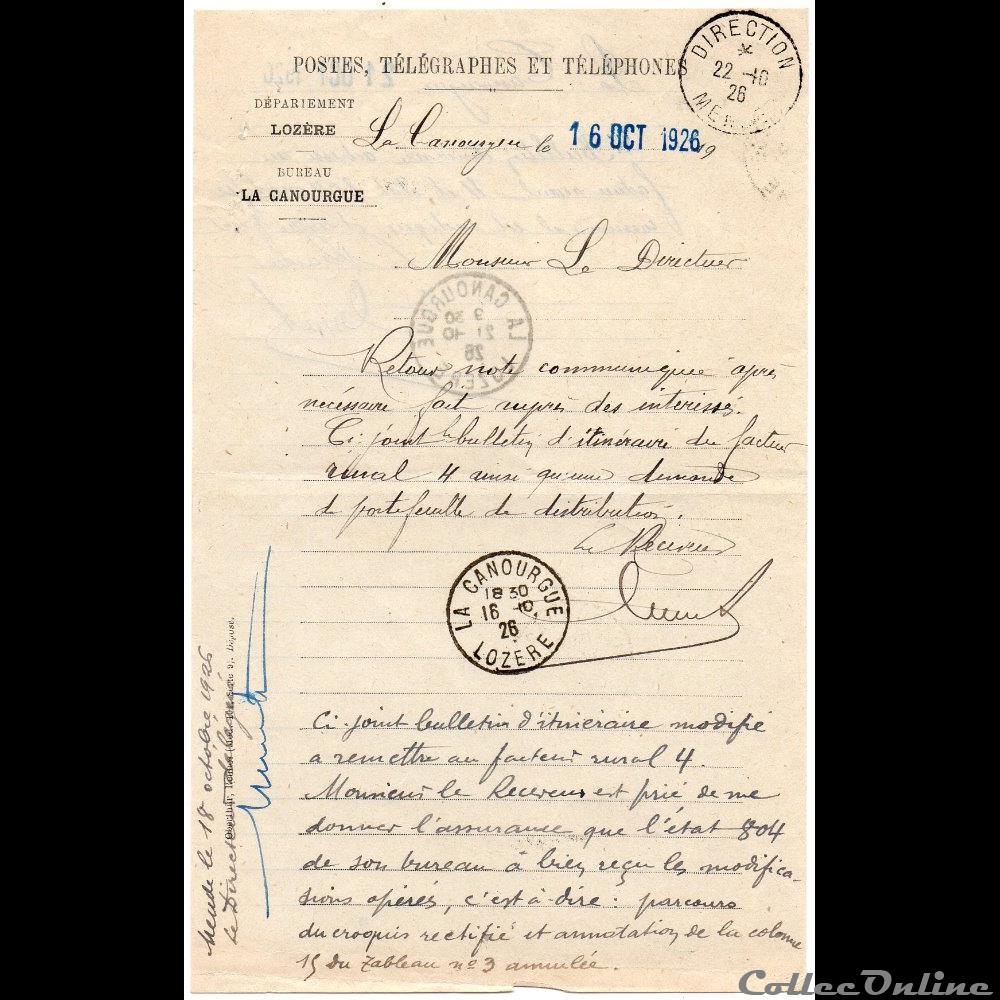 POSTES, TÉLÉGRAPHES ET TÉLÉPHONES
DIRECTION
22 -10
26
MENDE
DÉPARTEMENT
LOZÈRE
BUREAU
LA CANOURGUE
La Canourgue le 16 OCT 1926 19
Monsieur Le Directeur
LA CANOURGUE
9 30
21 -10
26
LOZERE
Retour note communiquée après
nécessaire fait auprès des intéressés.
Ci-joint le bulletin d'itinéraire du facteur
rural 4 ainsi qu'une demande
de portefeuille de distribution.
Le Receveur
LA CANOURGUE
18 30
16 -10
26
LOZERE
Ci-joint bulletin d'itinéraire modifié
a remettre au facteur rural 4.
Monsieur le Receveur est prié de me
donner l'assurance que l'état 804
de son bureau à bien reçu les modifica-
tions opérés, c'est-à-dire : parcours
du croquis rectifié et annotation de la colonne
15 du Tableau n°3 annulée.
Mende le 18 octobre 1926
le Directeur
Déposé.
CollecOnline